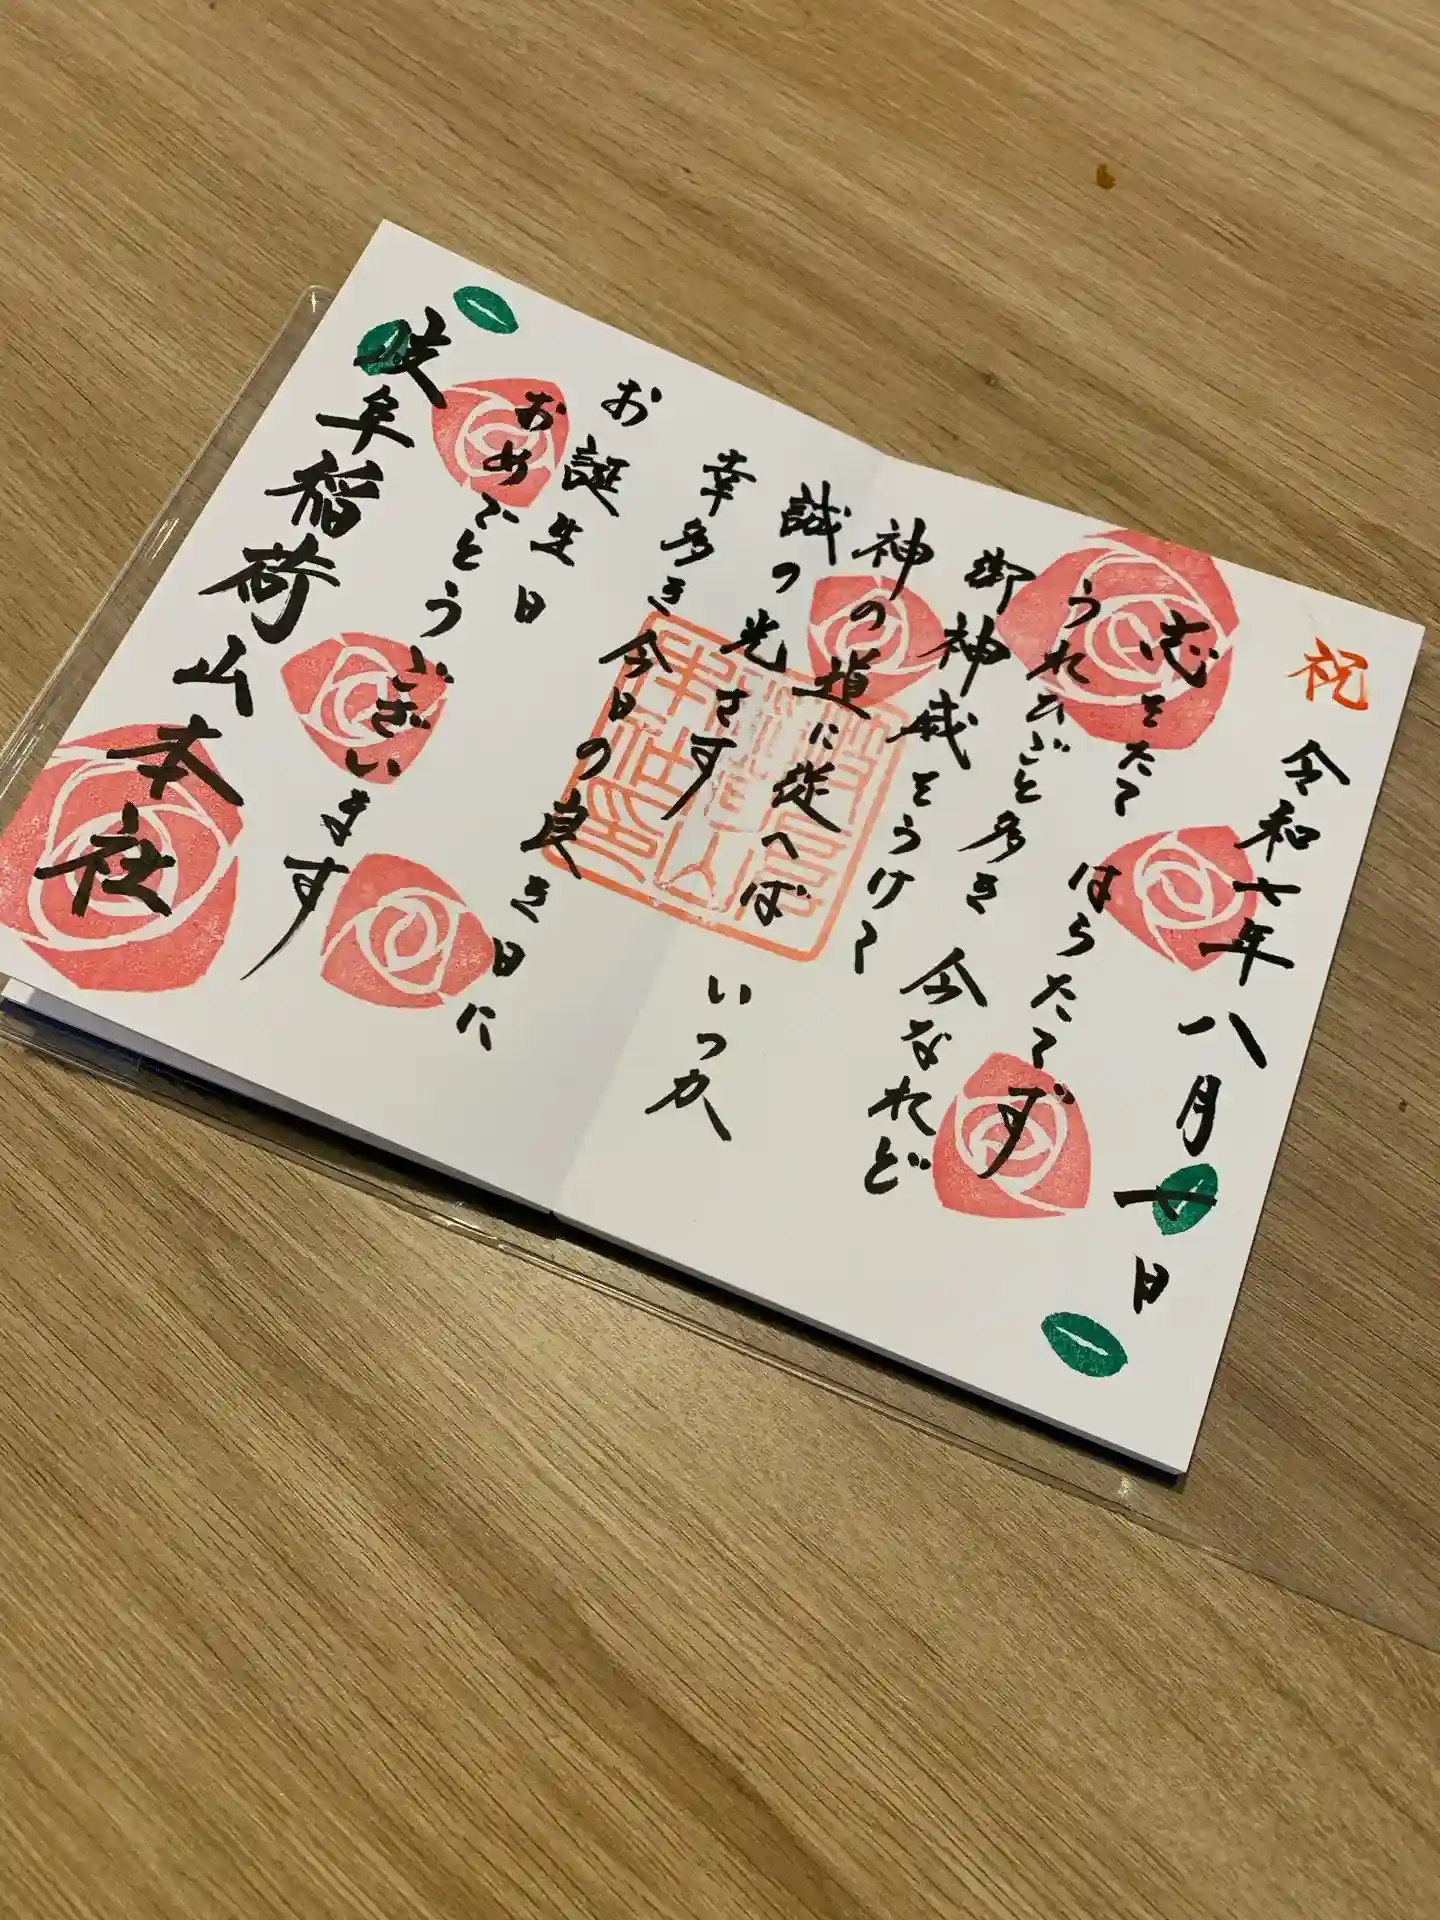 祝
令和七年八月廿日
志をたて はらたてず
うれひごと多き 今なれど
御神威をうけて
神の道に従へば いつか
誠の光さす
幸多き今日の良き日に
お誕生日
おめでとうございます
岐阜稲荷山本社